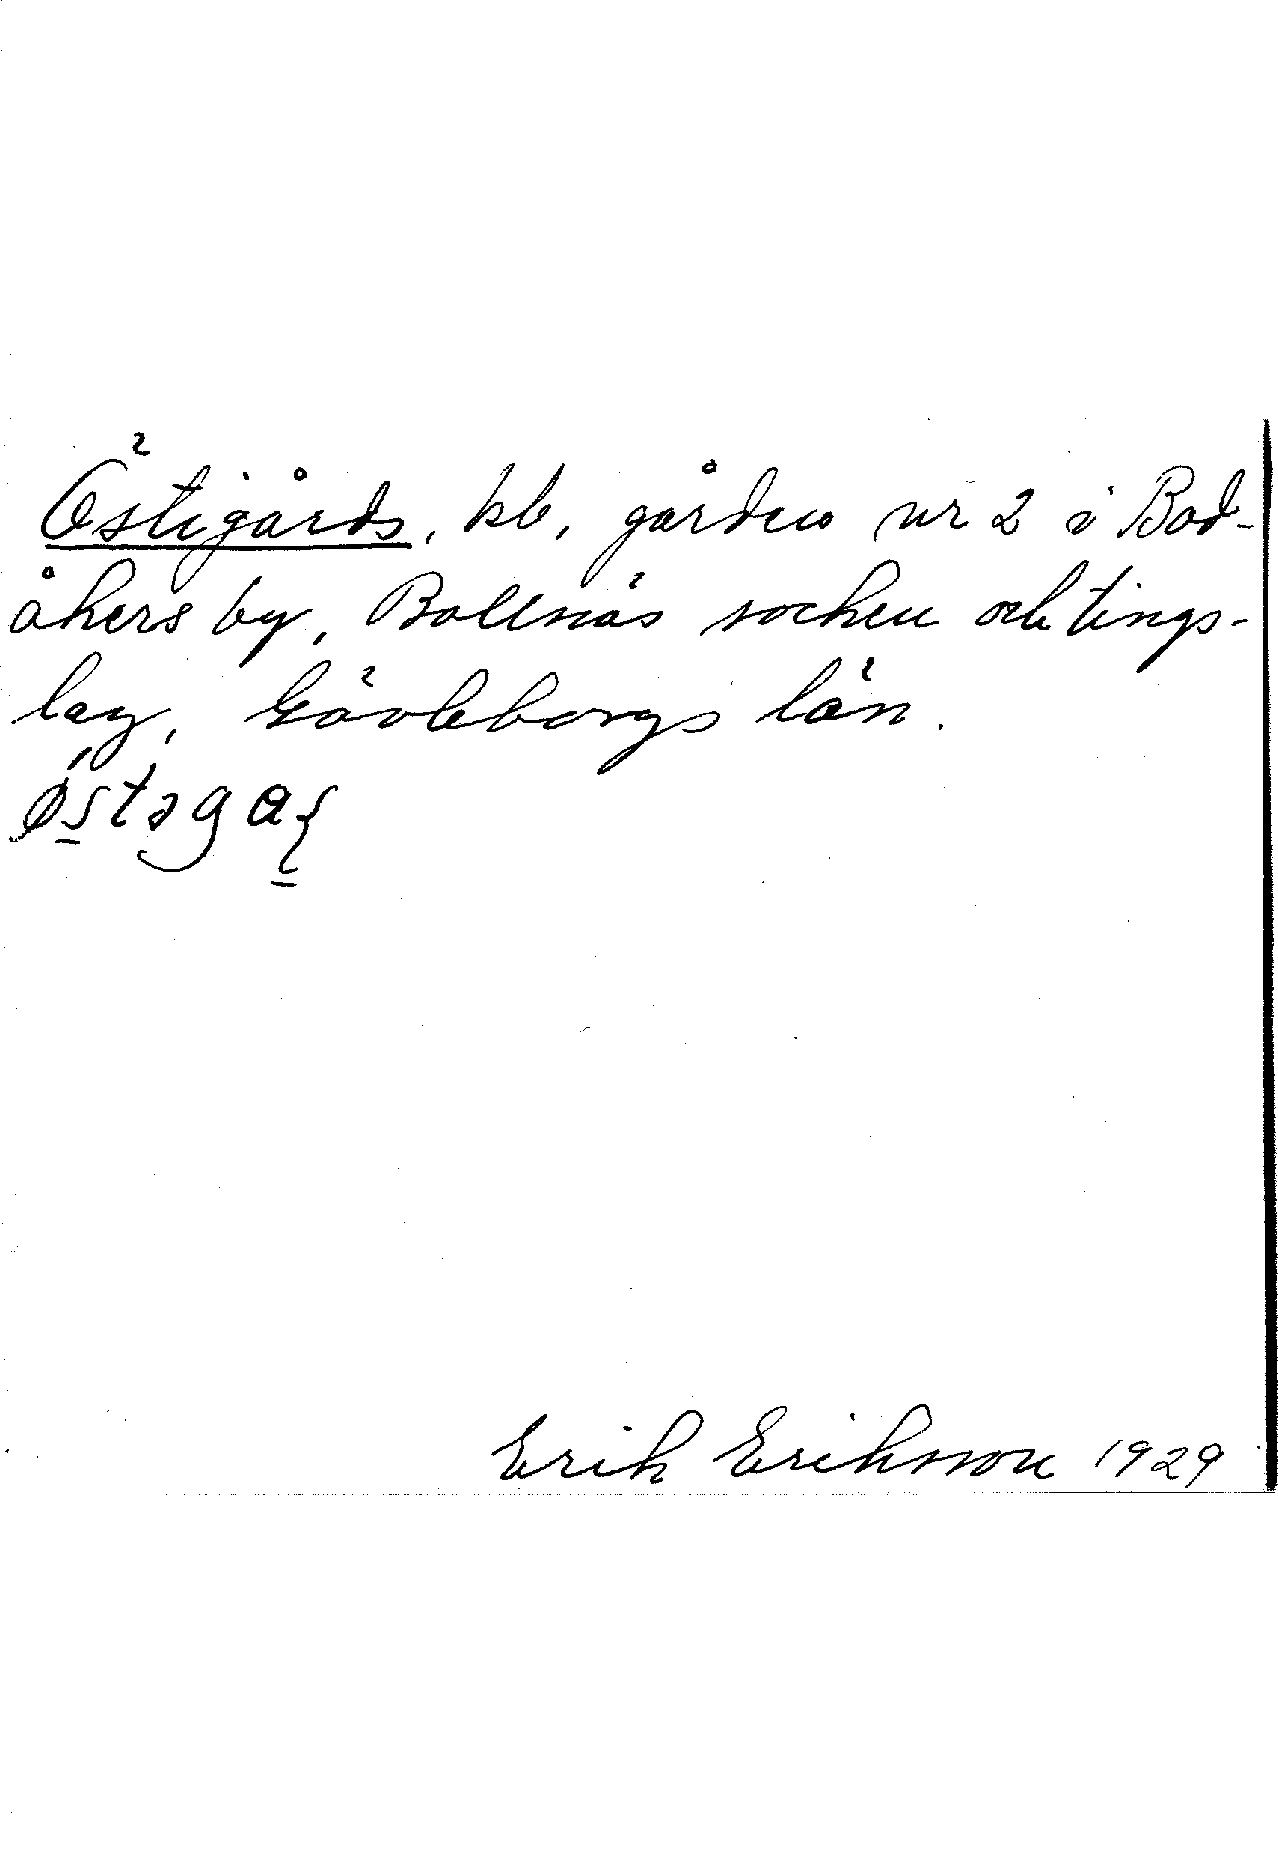 Östigårds, kb, gården nr 2 i Bod-
åkers by, Bollnäs socken och tings-
lag, Gävleborgs län.
Erik Eriksson 1929